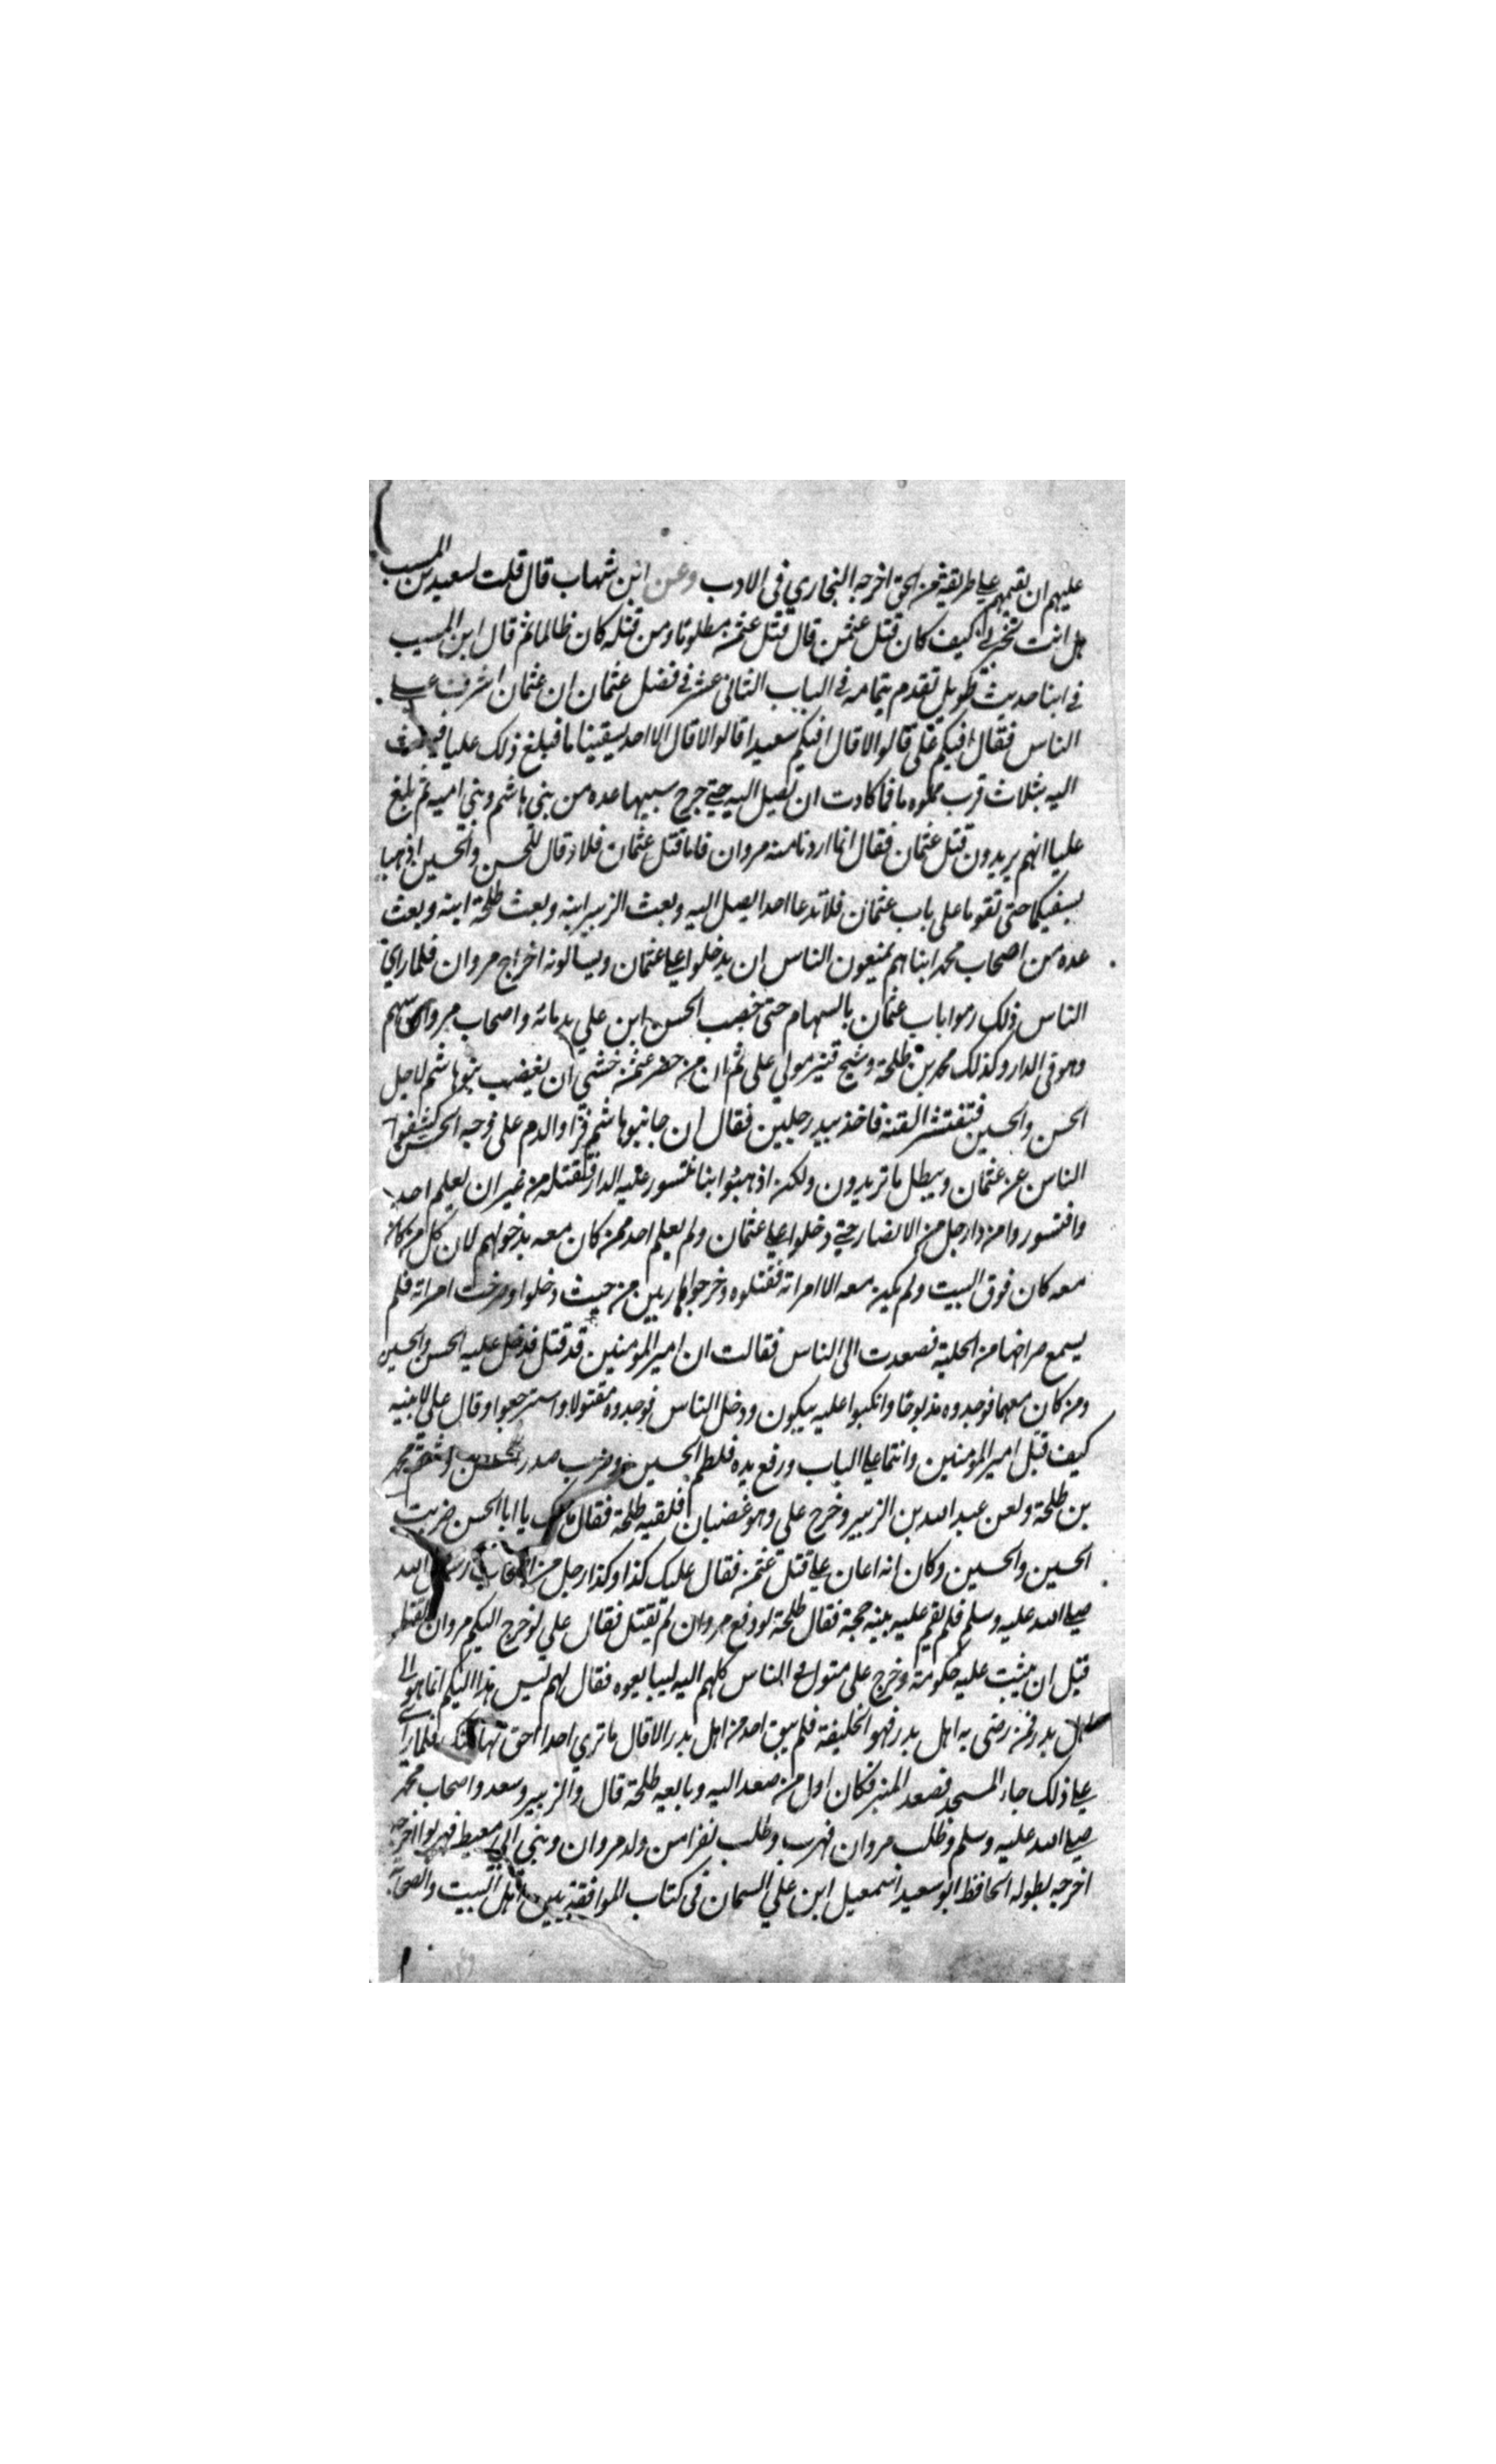 عليهم ان يقيمهم علي طريقة من الحق اخرجه البخاري في الادب وعن ابن شهاب قال قلت لسعيد بن المسيب
هل انت تخبرني كيف كان قتل عثمن قال قتل عثمن مظلوما ومن قتله كان ظالما ثم قال ابن المسيب
في اثنا حديث طويل تقدم بتمامه في الباب الثاني عشر في فضل عثمان ان عثمان اشرف علي
الناس فقال افيكم علي قالوا لا قال افيكم سعيد قالوا لا قال الا احد يسقينا ما فبلغ ذلك عليا
اليه بثلاث قرب مملوه ما فما كادت ان تصل اليه حتي جرح سببها عده من بني هاشم وبني اميه ثم بلغ
عليا انهم يريدون قتل عثمان فقال انما اردنا منه مروان فاما قتل عثمان فلا وقال للحسن والحسين اذهبا
بسيفيكما حتى تقوما على باب عثمان فلا تدعا احدا يصل اليه وبعث الزبير ابنه وبعث طلحة ابنه وبعث
عده من اصحاب محمد ابناهم يمنعون الناس ان يدخلوا علي عثمان ويسالونه اخراج مروان فلما راي
الناس ذلك رموا باب عثمان بالسهام حتى خضب الحسن ابن علي بدمائه واصحاب مروان سهم
وهو في الدار وكذلك محمد بن طلحة وشج قنبر مولي علي ثم ان من حضر عثمن خشي ان يغضب بنو هاشم لاجل
الحسن والحسين فتنتشر الفتنه فاخذ بيد رجلين فقال ان جا بنو هاشم فراوا الدم على وجه الحسن كشفوا
الناس عن عثمان ويبطل ما تريدون ولكن اذهبوا بنا نتسور عليه الدار فنقتله من غير ان يعلم احد
وافتسوروا من دار رجل من الانصار حتي دخلوا علي عثمان ولم يعلم احد ممن كان معه بدخولهم لان كل من كان
معه كان فوق البيت ولم يكن معه الا امراته فقتلوه وخرجوا هاربين من حيث دخلوا وصرخت امراته فلم
يسمع صراخها من الجلبة فصعدت الى الناس فقالت ان امير المومنين قد قتل فدخل عليه الحسن والحسين
ومن كان معهما فوجدوه مذبوحا وانكبوا عليه يبكون ودخل الناس فوجدوه مقتولا واسترجعوا وقال علي لابنيه
كيف قتل امير المومنين وانتما علي الباب ورفع يده فلطم الحسين وضرب صدر الحسن وشتم محمد
بن طلحة ولعن عبد الله بن الزبير وخرج علي وهو غضبان فلقيه طلحة فقال مالك يا ابا الحسن ضربت
الحسين والحسين وكان انه اعان علي قتل عثمن فقال عليك كذا وكذا رجل من اصحاب رسول الله
صلي الله عليه وسلم فلم يقم عليه بينه حجة فقال طلحة لو دفع مروان لم يقتل فقال علي لو خرج اليكم مروان لقتل
قبل ان يثبت عليه حكومة وخرج علي الناس كلهم اليه ليبايعوه فقال لهم ليس هذا اليكم انما هو الي
اهل بدر فمن رضي به اهل بدر فهو الخليفة فلم يبق احد من اهل بدر الا قال ما نري احدا احق بها منك فلما راي
علي ذلك جاء المسجد فصعد المنبر فكان اول من صعد اليه وبايعه طلحة قال والزبير وسعد واصحاب محمد
صلي الله عليه وسلم وطلب مروان فهرب وطلب نفرا من ولد مروان وبني ابي معيط فهربوا اخرجه
اخرجه بطوله الحافظ ابو سعيد اسمعيل ابن علي السمان في كتاب الموافقة بين اهل البيت والصحابة